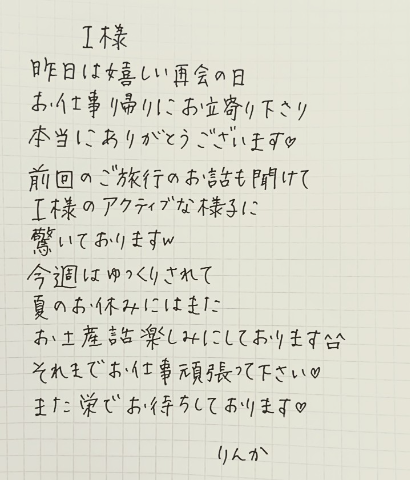 I様
昨日は嬉しい再会の日
お仕事帰りにお立寄り下さり
本当にありがとうございます♡
前回のご旅行のお話も聞けて
I様のアクティブな様子に
驚いておりますw
今週はゆっくりされて
夏のお休みにはまた
お土産話楽しみにしております^^
それまでお仕事頑張って下さい♡
また栄でお待ちしております♡
りんか